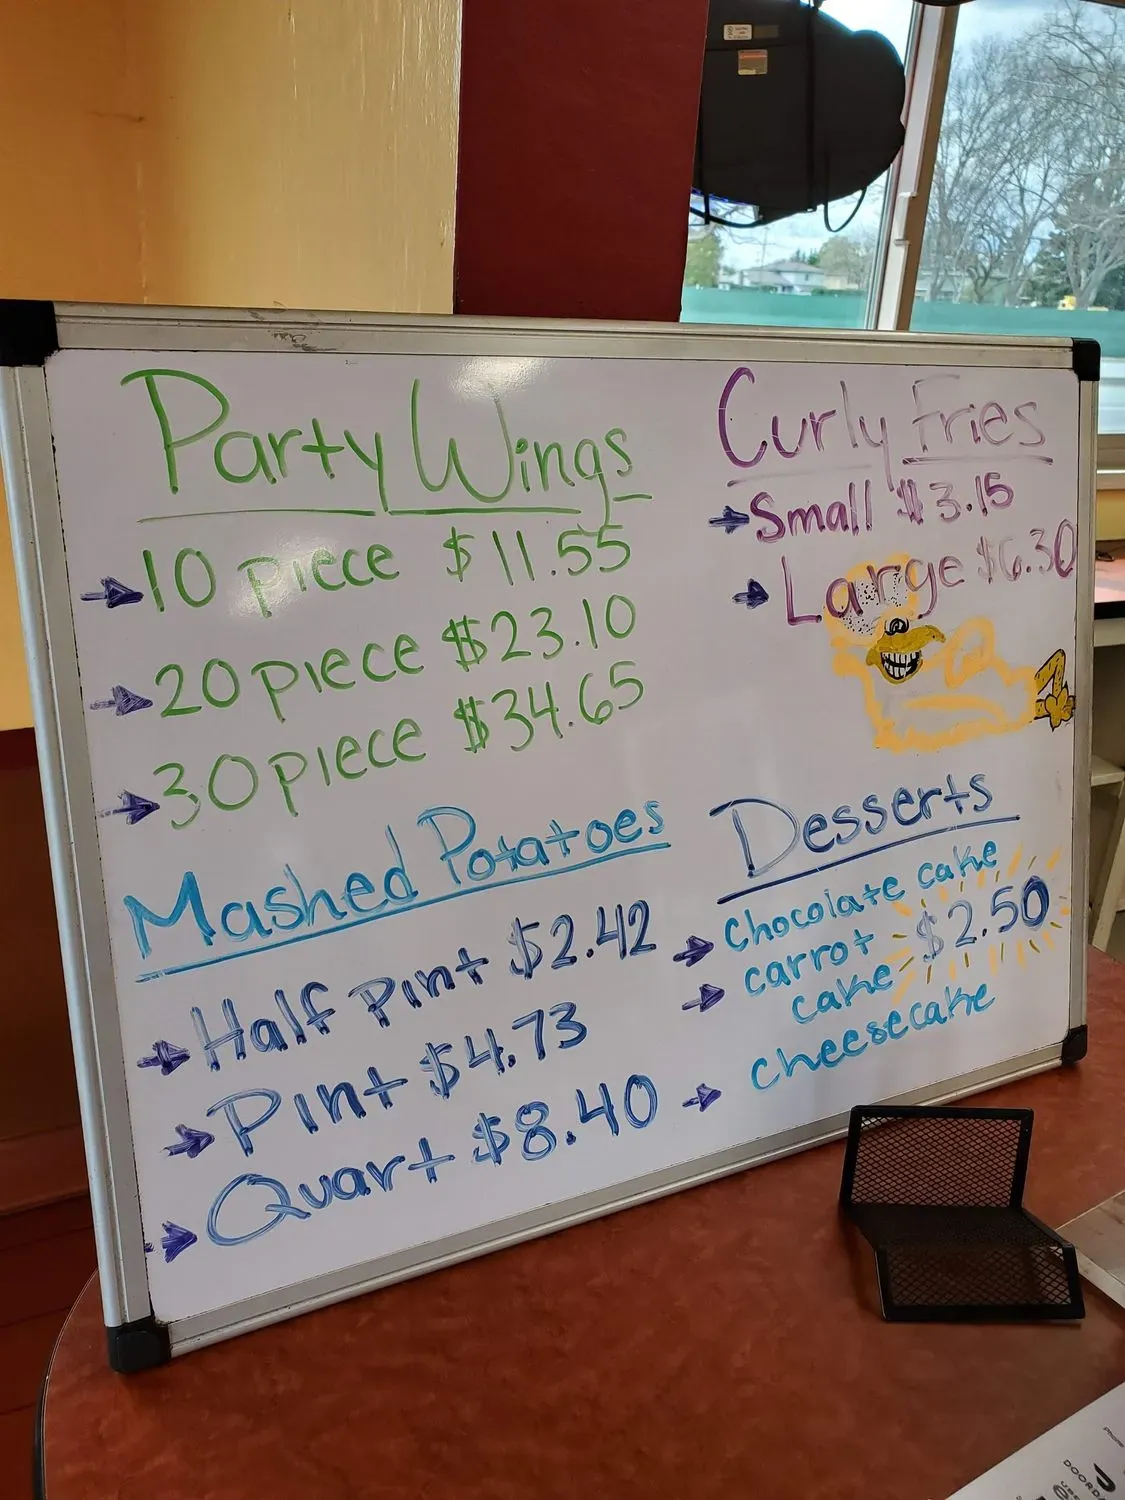 Party Wings
10 piece $11.55
20 piece $23.10
30 piece $34.65
Curly Fries
Small $3.15
Large $6.30
Mashed Potatoes
Half Pint $2.42
Pint $4.73
Quart $8.40
Desserts
Chocolate cake
carrot
cake
$2.50
cheesecake